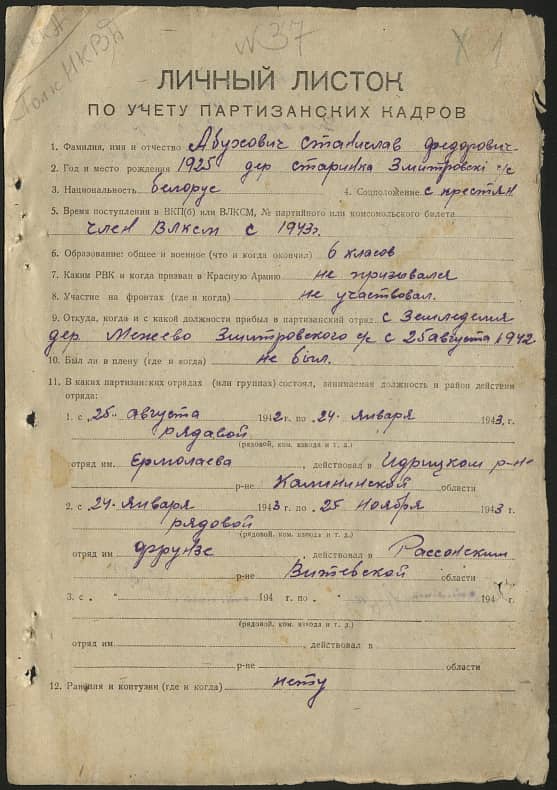 Полк НКВД
№37
X 1
ЛИЧНЫЙ ЛИСТОК
ПО УЧЕТУ ПАРТИЗАНСКИХ КАДРОВ
1. Фамилия, имя и отчество Абухович Станислав Федорович
2. Год и место рождения 1925 дер Старинка Змитровскі с/с
3. Национальность белорус 4. Соцположение с крестян
5. Время поступления в ВКП(б) или ВЛКСМ, № партийного или комсомольского билета
член ВЛКСМ с 1943г.
6. Образование: общее и военное (что и когда окончил) 6 класов
7. Каким РВК и когда призван в Красную Армию не призывался
8. Участие на фронтах (где и когда) не участвовал.
9. Откуда, когда и с какой должности прибыл в партизанский отряд с Земледелия
дер. Межево Змитровского с/с с 25 августа 1942
10. Был ли в плену (где и когда) не был.
11. В каких партизанских отрядах (или группах) состоял, занимаемая должность и район действия
отряда:
1. с 25 августа 1942 г. по 24 января 1943 г.
рядавой
(рядовой, ком. взвода и т. д.)
отряд им. Ермолаева, действовал в Идрицком р-не
р-не Калининской области
2. с 24 января 1943 г. по 25 ноября 1943 г.
рядовой
(рядовой, ком. взвода и т. д.)
отряд им Фрунзе, действовал в Россонским
р-не Витевской области
3. с „ 194 г. по „ 194 г.
(рядовой, ком. взвода и т. д.)
отряд им. , действовал в
р-не области
12. Ранения и контузии (где и когда) нету